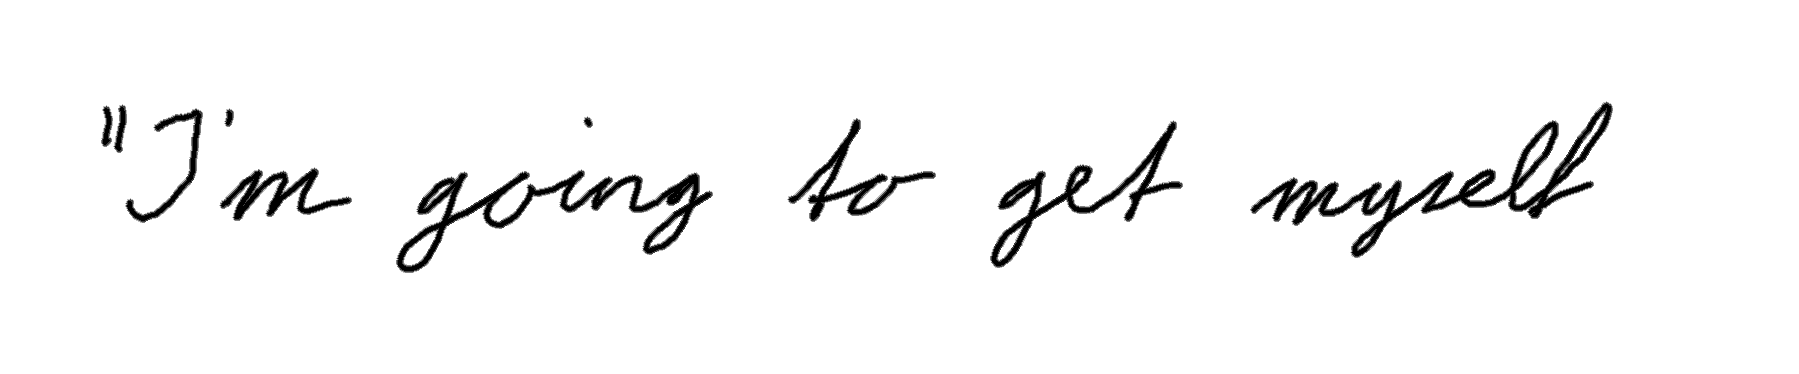 "I'm going to get myself